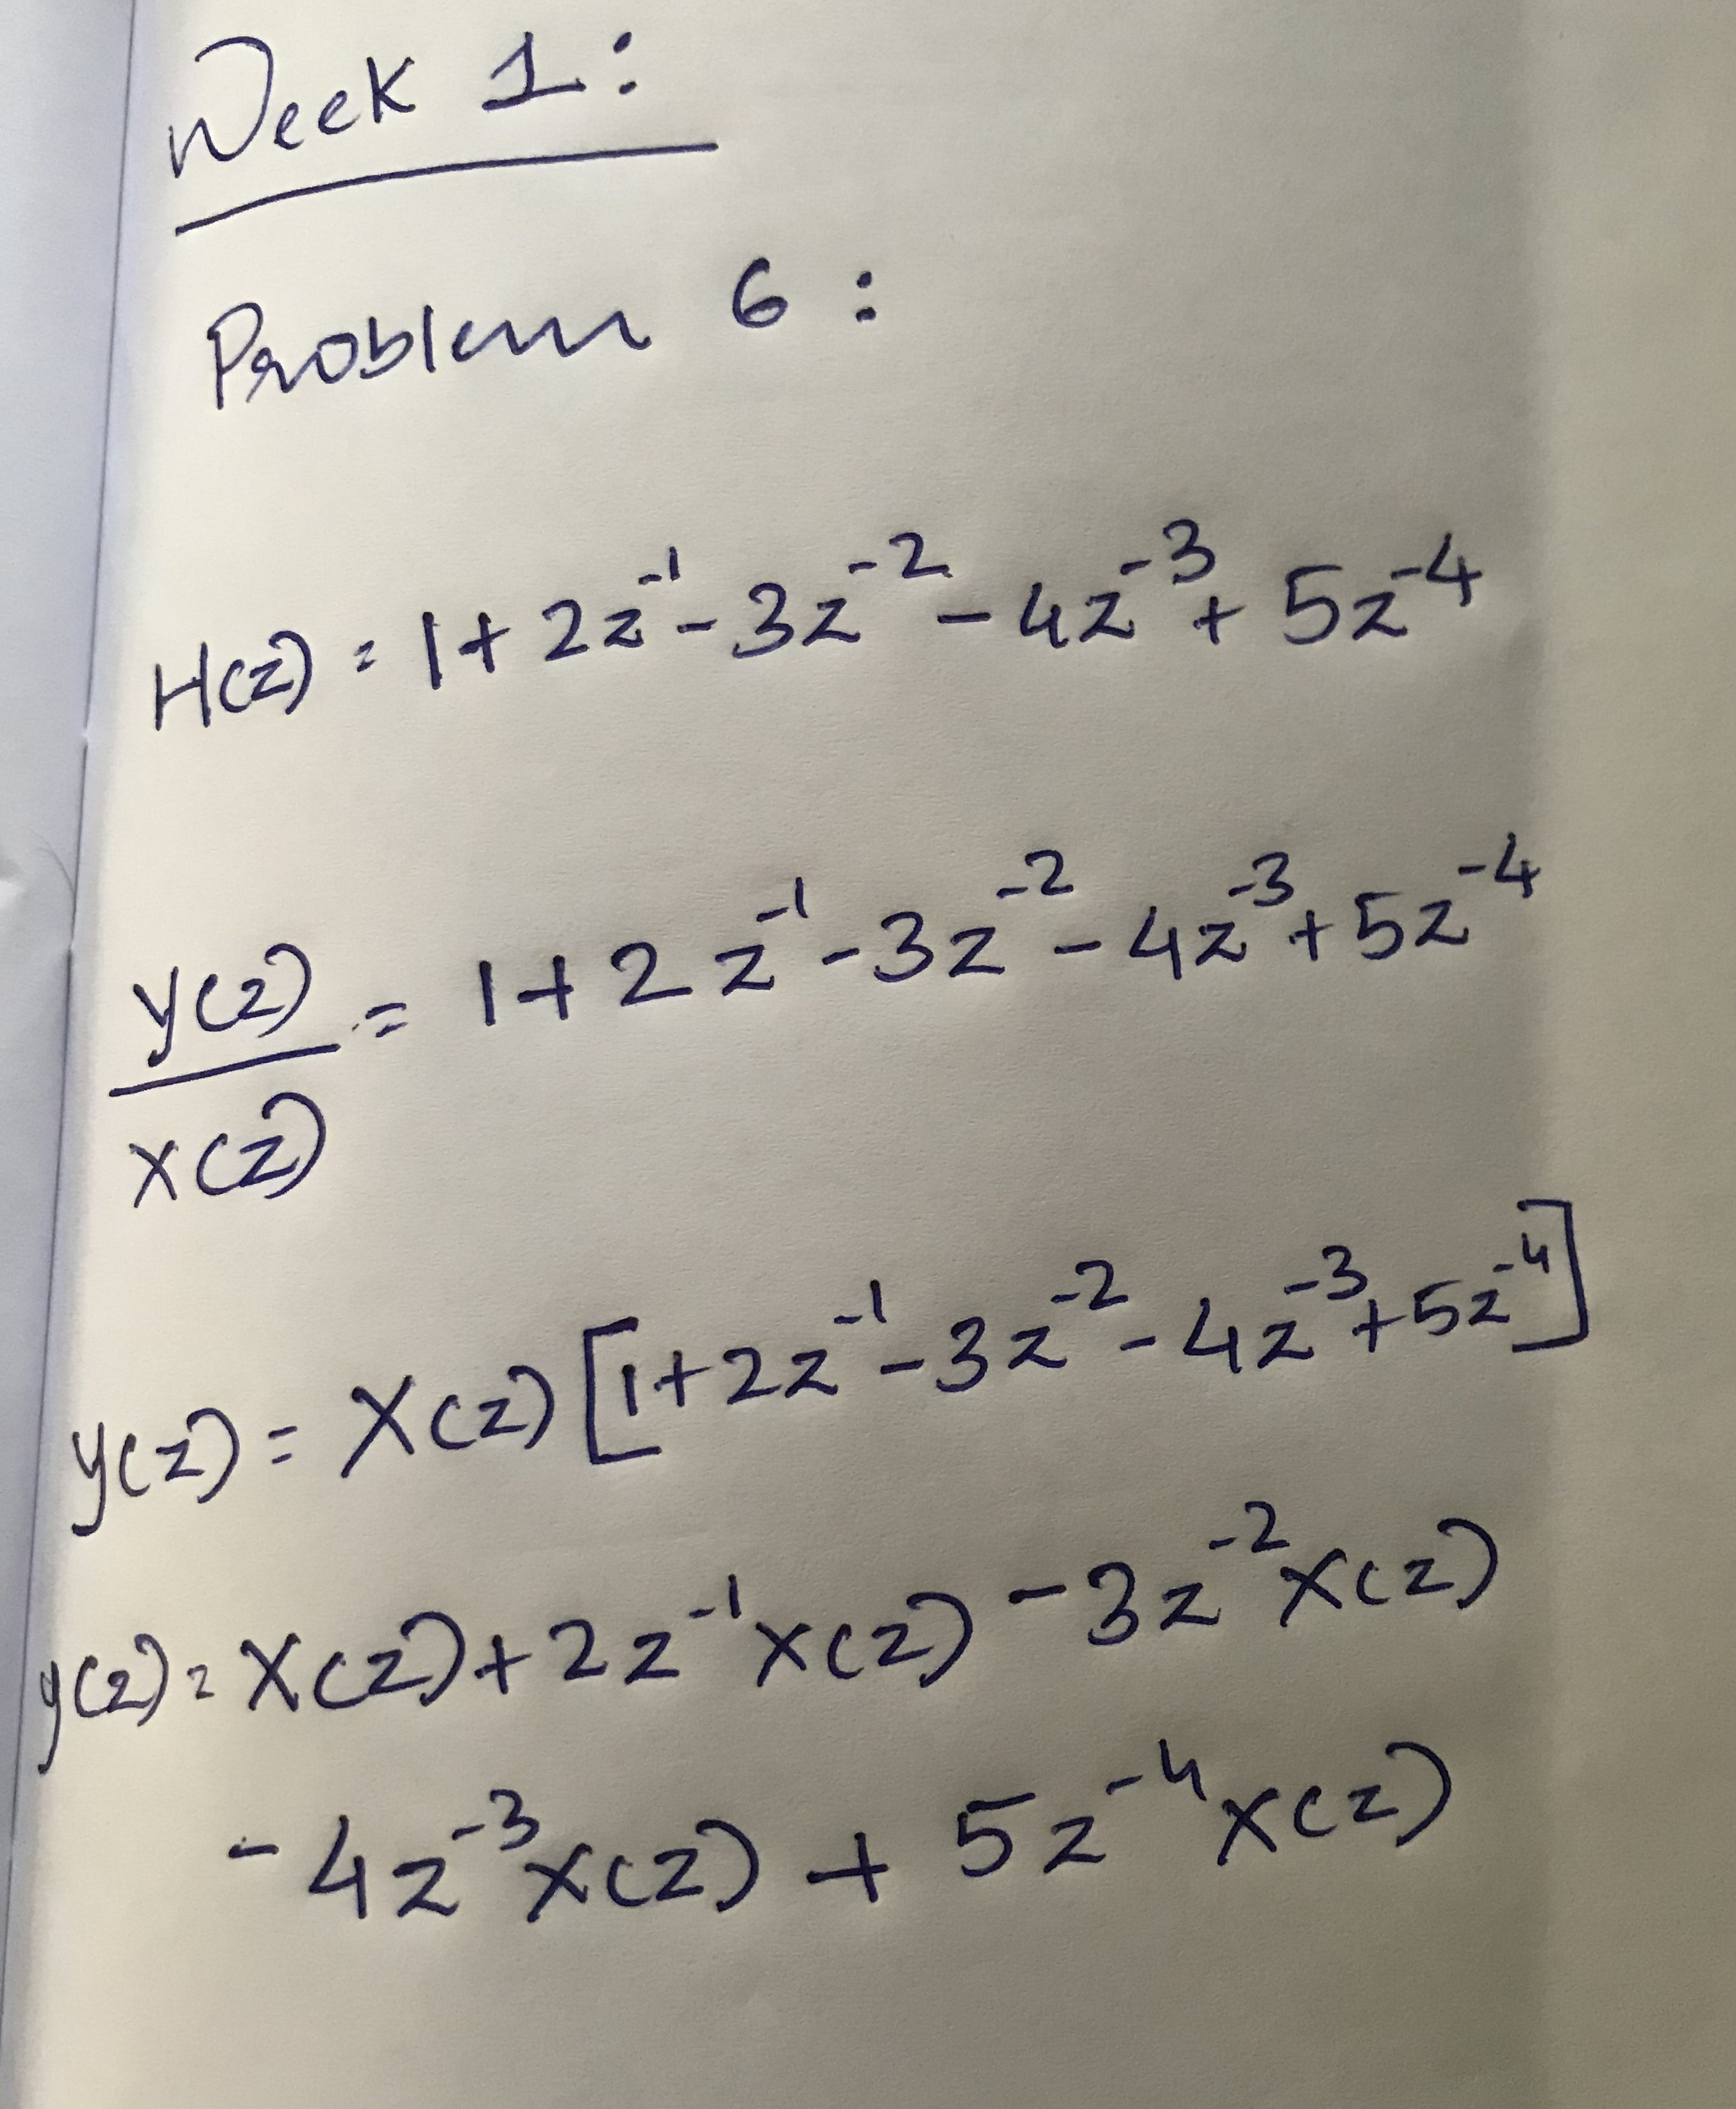 Week 1:
Problem 6:
H(z) = 1 + 2z⁻¹ - 3z⁻² - 4z⁻³ + 5z⁻⁴
y(z)/x(z) = 1 + 2z⁻¹ - 3z⁻² - 4z⁻³ + 5z⁻⁴
y(z) = X(z) [1 + 2z⁻¹ - 3z⁻² - 4z⁻³ + 5z⁻⁴]
y(z) = X(z) + 2z⁻¹ x(z) - 3z⁻² x(z)
- 4z⁻³ x(z) + 5z⁻⁴ x(z)